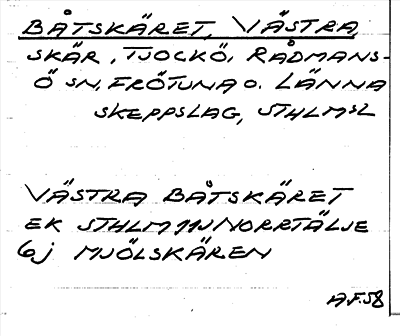 BÅTSKÄRET, VÄSTRA
SKÄR, TJOCKÖ, RÅDMANS-
Ö SN, FRÖTUNA O. LÄNNA
SKEPPSLAG, STHLMSL
VÄSTRA BÅTSKÄRET
EK STHLM 11J NORRTÄLJE
6j MJÖLSKÄREN
A.F.58